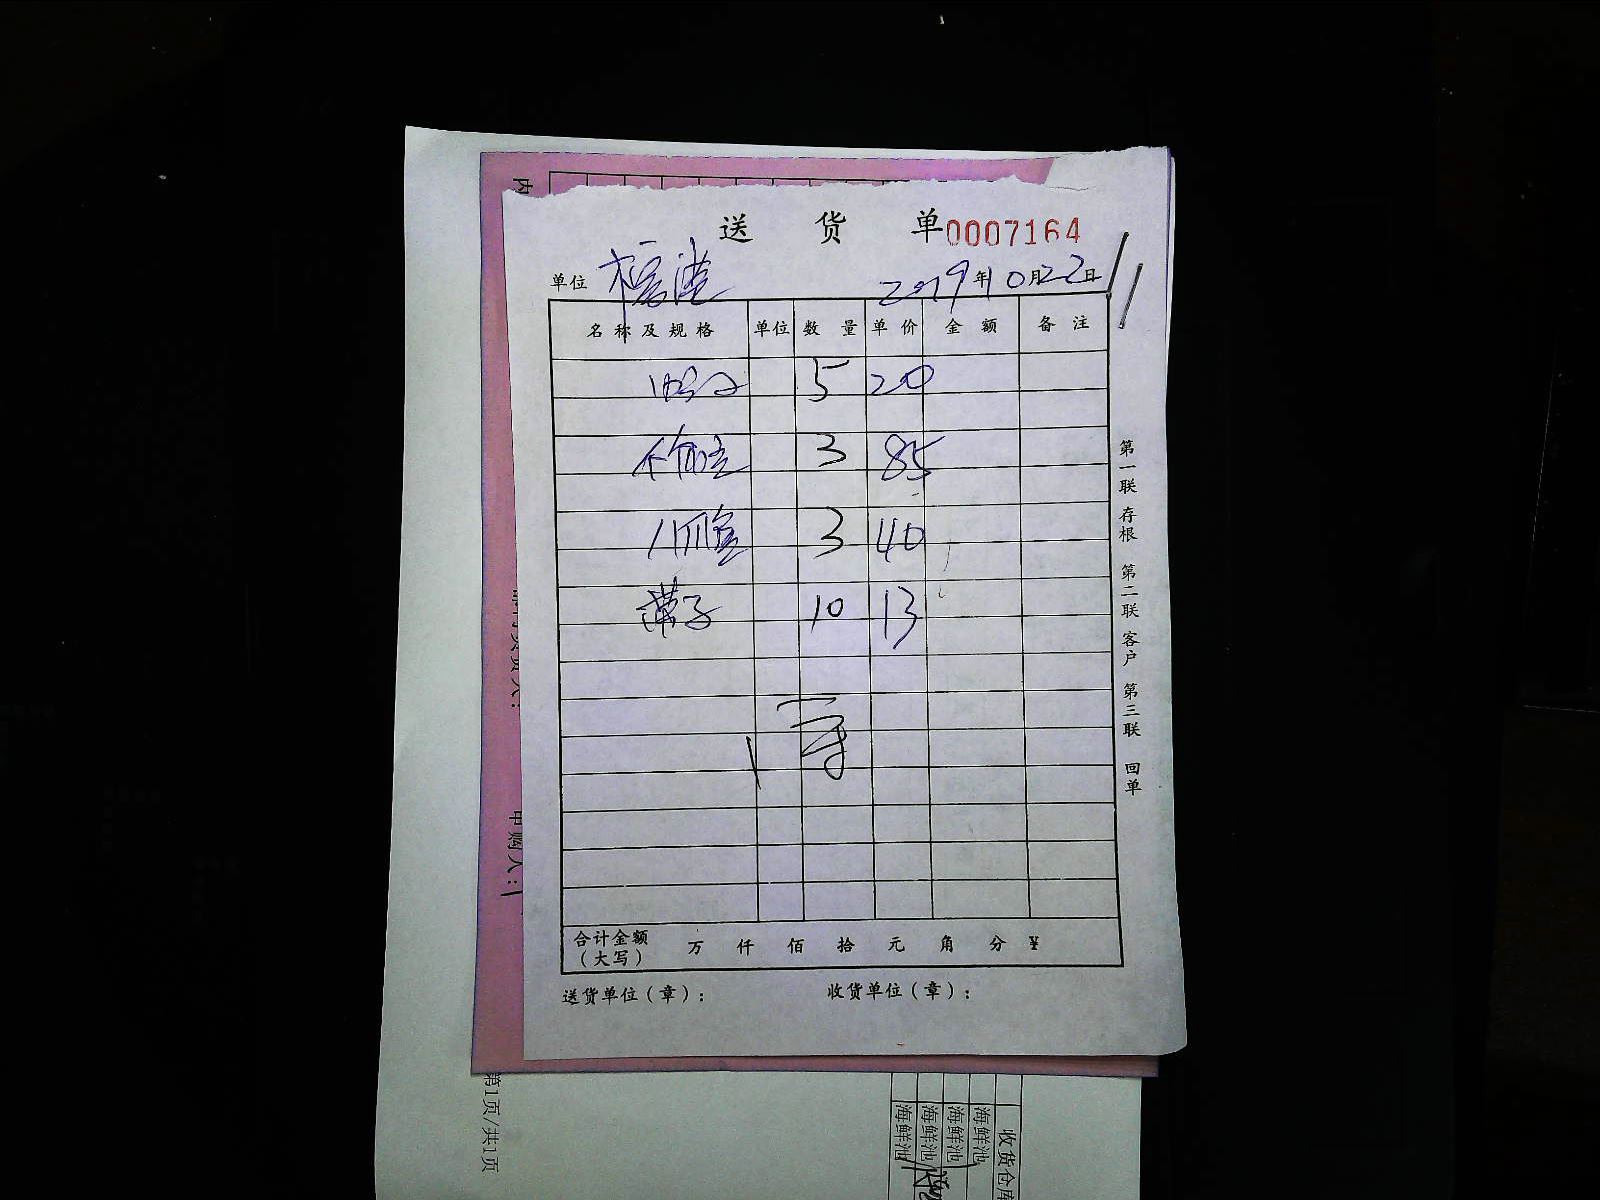 内
送 货 单 0007164
单位 2019年10月22日
名 称 及 规 格 单位 数 量 单 价 金 额 备 注
5 20
3 85
八爪 3 40
带子 10 13
合计金额
（大写） 万 仟 佰 拾 元 角 分 ¥
送货单位（章）： 收货单位（章）：
第一联 存根 第二联 客户 第三联 回单
申购人：
第1页/共1页
收货仓库
海鲜池
海鲜池
海鲜池
海鲜池